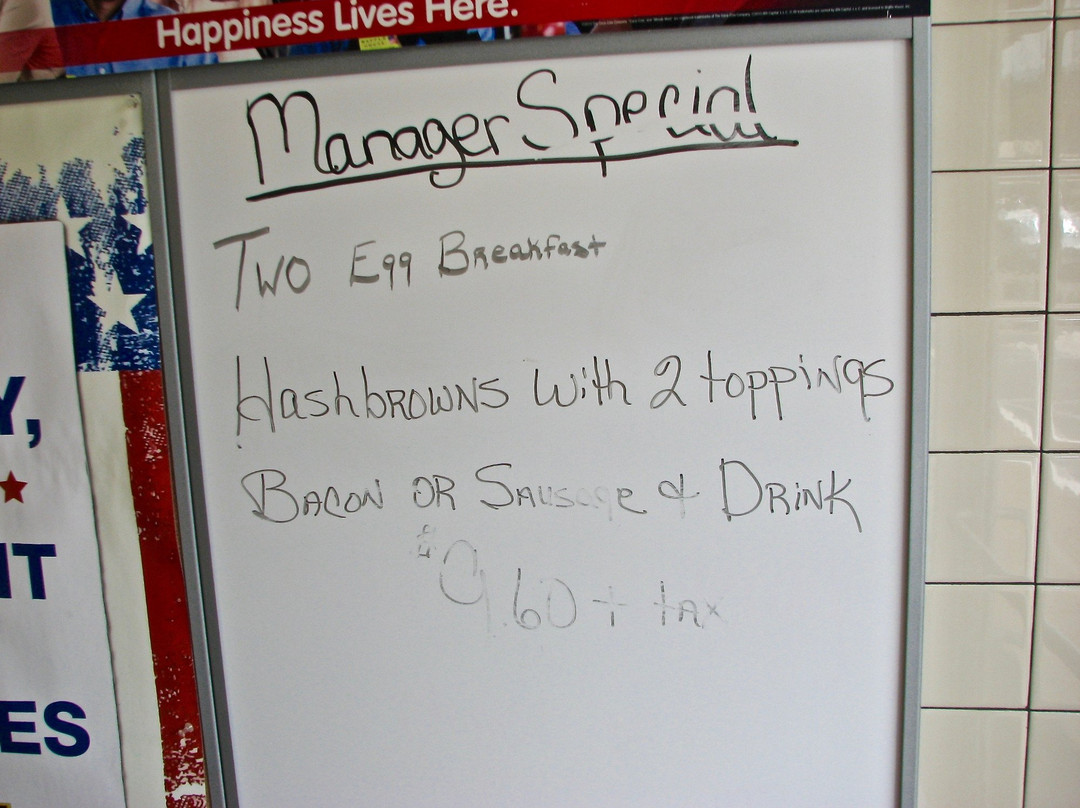 Happiness Lives Here.
Manager Special
Two Egg Breakfast
Hashbrowns with 2 toppings
Bacon or Sausage & Drink
$9.60 + tax
Y,
IT
ES